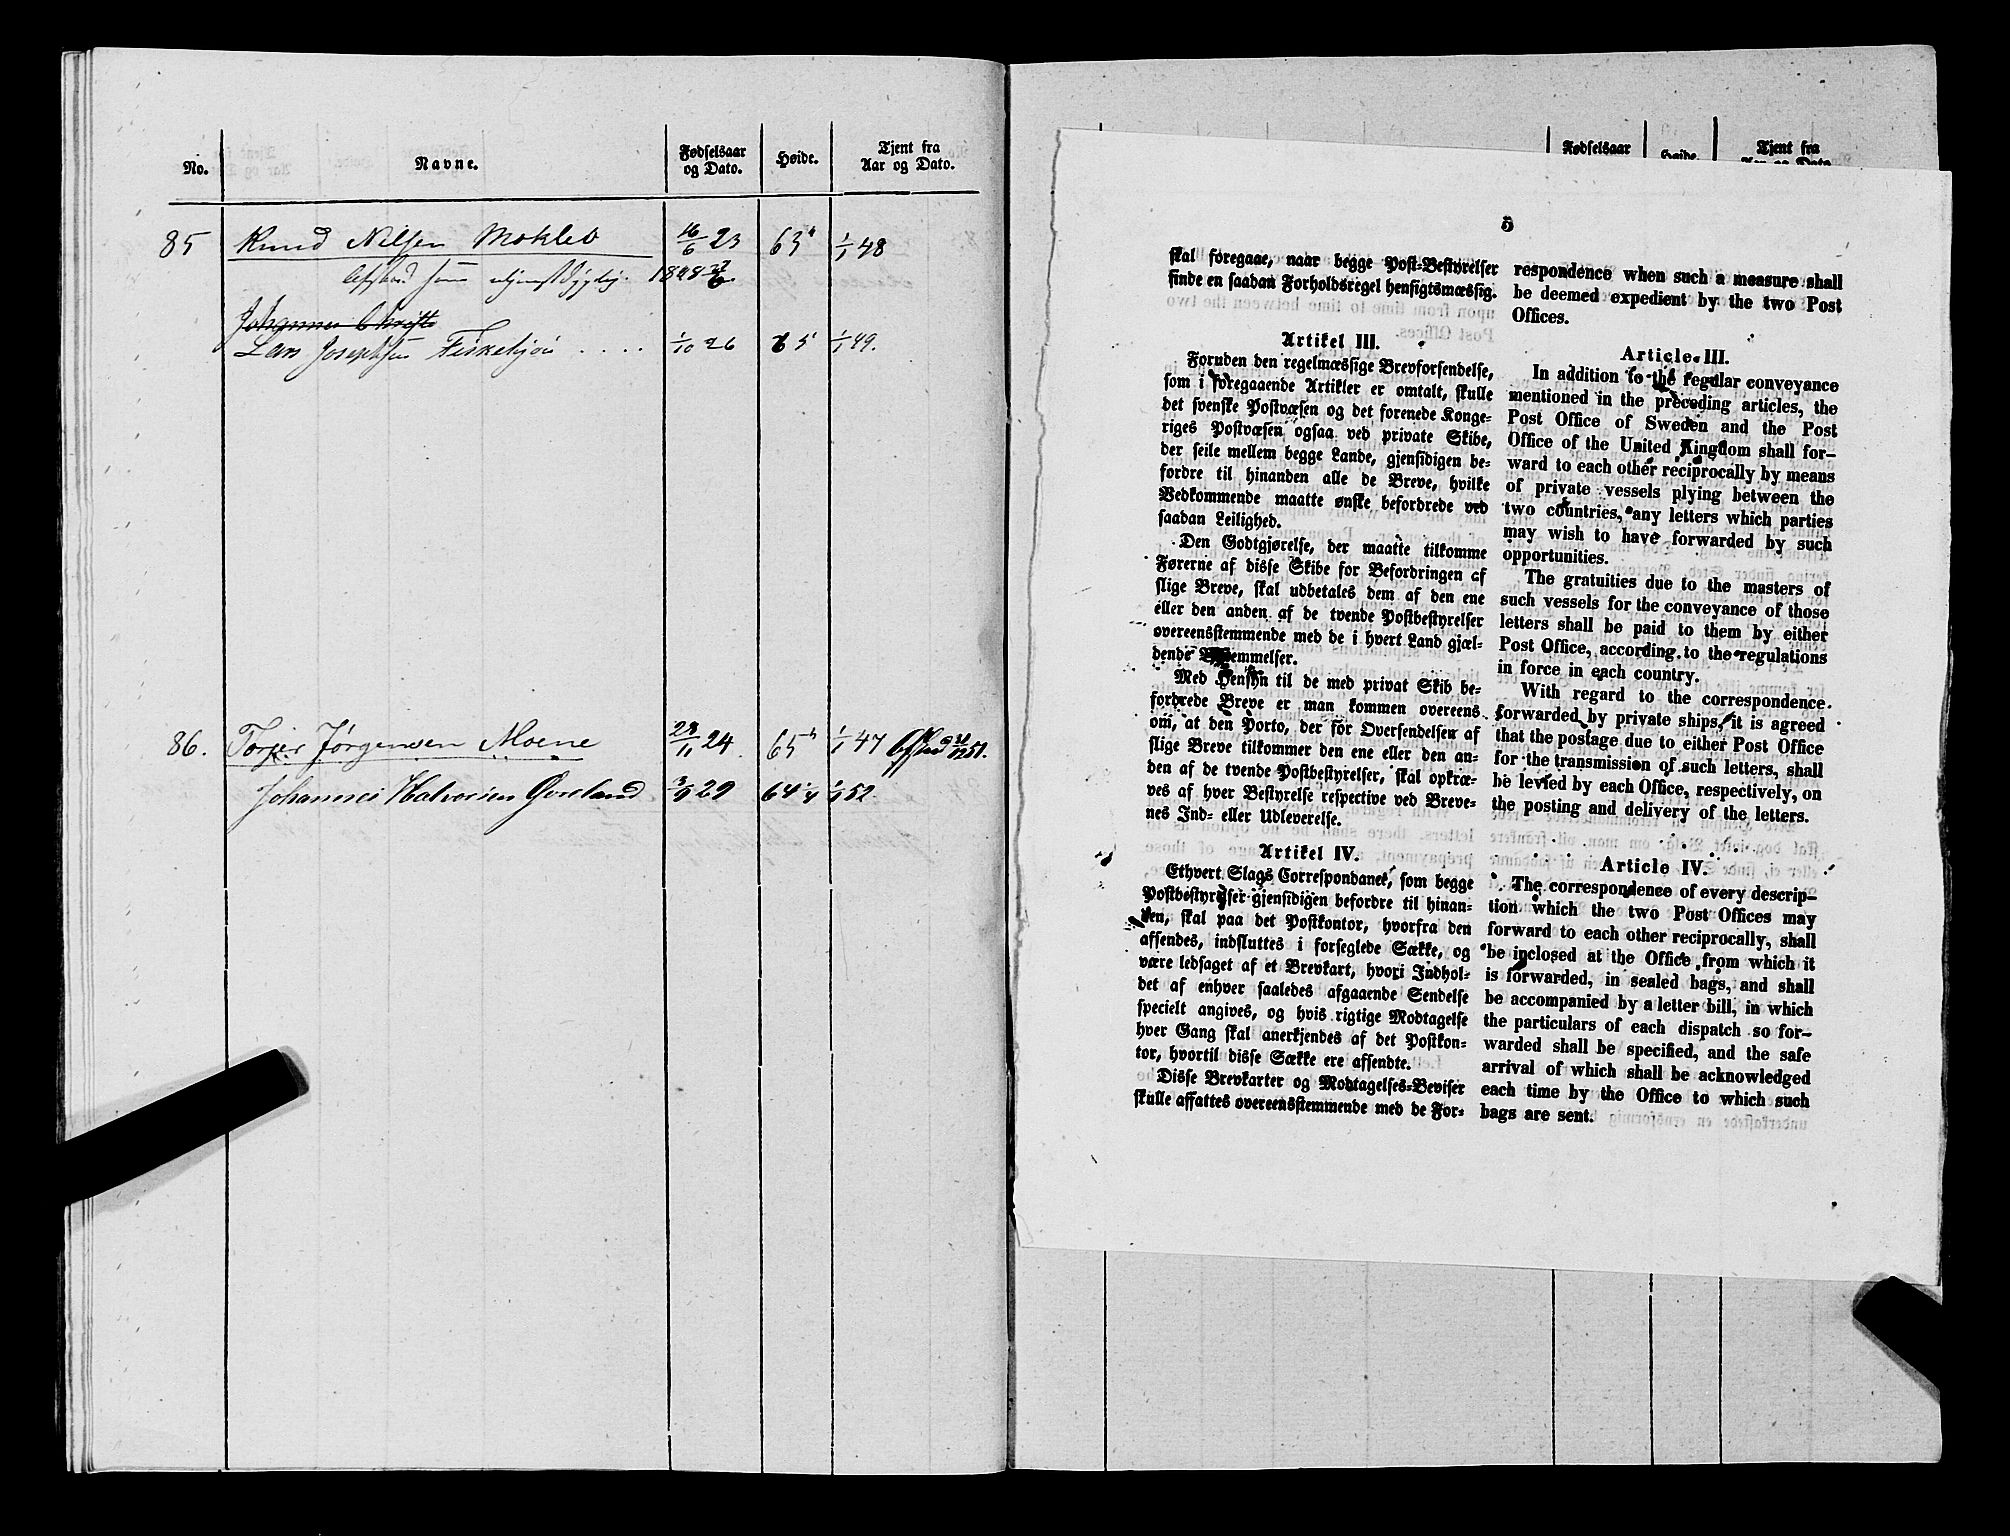 No. Navne. Fødselsaar og Dato. Høide. Tjent fra Aar og Dato.
85 Knud Nilsen Mokleb 16/6 23 63" 1/1 48
Afskd som utjenstdygtig. 1848
Johannes Christ
Lars Josephsen Fisketjøn . . . . 1/10 26 65 1/1 49.
86. Torjer Jørgensen Moene 28/11 24. 65" 1/1 47 Afsked 31/12 51.
Johannes Halvorsen Goveland 3/9 29 64 1/4 1/1 52.
Fødselsaar Høide. Tjent fra
Aar og Dato
5
skal foregaae, naar begge Post-Bestyrelser
finde en saadan Forholdsregel hensigtsmæssig.
Artikel III.
Foruden den regelmæssige Brevforsendelse,
som i foregaaende Artikler er omtalt, skulle
det svenske Postvæsen og det forenede Konge-
riges Postvæsen ogsaa ved private Skibe,
der seile mellem begge Lande, gjensidigen be-
fordre til hinanden alle de Breve, hvilke
Vedkommende maatte ønske befordrede ved
saadan Leilighed.
Den Godtgjørelse, der maatte tilkomme
Førerne af disse Skibe for Befordringen af
slige Breve, skal udbetales dem af den ene
eller den anden af de tvende Postbestyrelser
overeensstemmende med de i hvert Land gjæl-
dende Bestemmelser.
Med Hensyn til de med privat Skib be-
fordrede Breve er man kommen overeens
om, at den Porto, der for Oversendelsen af
slige Breve tilkommer den ene eller den an-
den af de tvende Postbestyrelser, skal opkræ-
ves af hver Bestyrelse respective ved Breve-
nes Ind- eller Udleverelse.
Artikel IV.
Ethvert Slags Correspondance, som begge
Postbestyrelser gjensidigen befordre til hinan-
den, skal paa det Postkontor, hvorfra den
afsendes, indsluttes i forseglede Sække, og
være ledsaget af et Brevkart, hvori Indhol-
det af enhver saaledes afgaaende Sendelse
specielt angives, og hvis rigtige Modtagelse
hver Gang skal anerkjendes af det Postkon-
tor, hvortil disse Sække ere afsendte.
Disse Brevkarter og Modtagelses-Beviser
skulle affattes overeensstemmende med de For-
respondence when such a measure shall
be deemed expedient by the two Post
Offices.
Article III.
In addition to the regular conveyance
mentioned in the preceding articles, the
Post Office of Sweden and the Post
Office of the United Kingdom shall for-
ward to each other reciprocally by means
of private vessels plying between the
two countries, any letters which parties
may wish to have forwarded by such
opportunities.
The gratuities due to the masters of
such vessels for the conveyance of those
letters shall be paid to them by either
Post Office, according to the regulations
in force in each country.
With regard to the correspondence
forwarded by private ships, it is agreed
that the postage due to either Post Office
for the transmission of such letters, shall
be levied by each Office, respectively, on
the posting and delivery of the letters.
Article IV.
The correspondence of every descrip-
tion which the two Post Offices may
forward to each other reciprocally, shall
be inclosed at the Office from which it
is forwarded, in sealed bags, and shall
be accompanied by a letter bill, in which
the particulars of each dispatch so for-
warded shall be specified, and the safe
arrival of which shall be acknowledged
each time by the Office to which such
bags are sent.